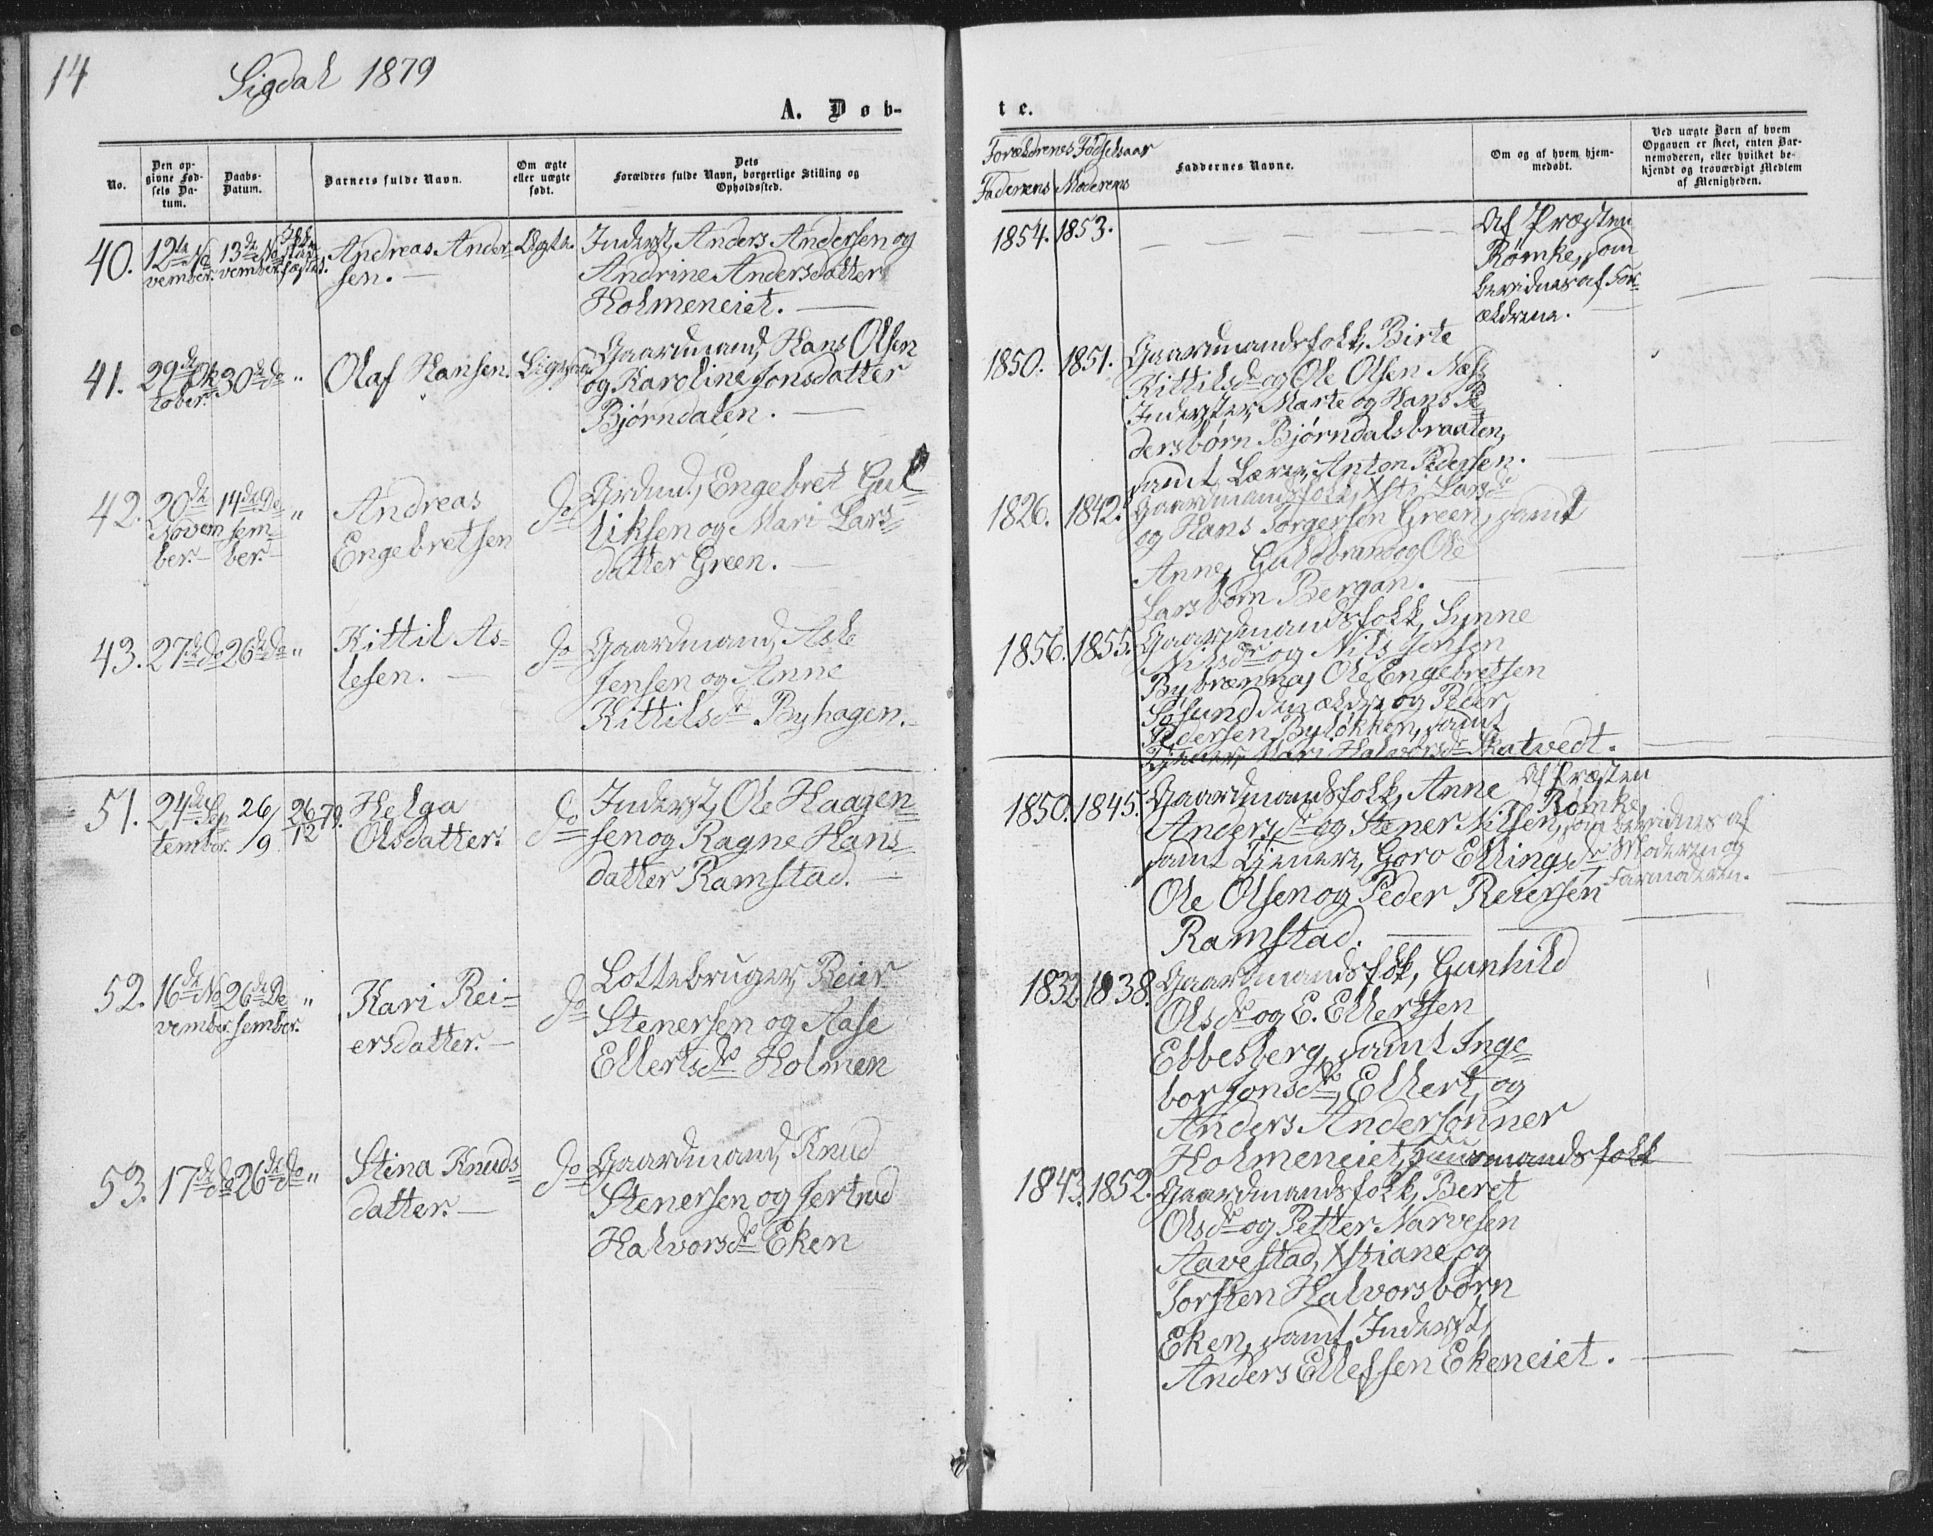 14
Sigdal 1879
A. Døb-
te.
No.
Den op-
givne Fød-
sels Da-
tum.
Daabs-
Datum.
Barnets fulde Navn.
Om ægte
eller uægte
født.
Dets
Forældres fulde Navn, borgerlige Stilling og
Opholdssted.
Forældrenes Fødselsaar
Faderens Moderens
Faddernes Navne.
Om og af hvem hjem-
medøbt.
Ved uægte Børn af hvem
Opgaven er skeet, enten Bar-
nemoderen, eller hvilket be-
kjendt og troværdigt Medlem
af Menigheden.
40.
12te No
vember.
13de No
vember.
Andreas Ander-
sen. —
Ægte.
Inderst, Anders Andersen og
Andrine Andersdatter
Holmeneiet. —
1854. 1853.
Af Præsten
Rømke, som
bevidnes af For-
ældrene.
41.
29de Ok
tober.
30de do "
Olaf Hansen.
Gaardmand, Hans Olsen
og Karoline Jonsdatter
Bjørndalen. —
1850. 1851.
Gaardmandsfolk, Birte
Kittilsdr og Ole Olsen Næs,
Inderster Marte og Hans Pe-
dersbørn Bjørndalsbraaten,
samt Lærer, Anton Pedersen.
42.
20de
Novem
ber. —
14de De
sem-
ber. —
"
Andreas
Engebretsen
do
Engebret Gul-
liksen og Mari Lars-
datter Green. —
1826. 1842.
Gaardmandsfolk, Xsti Larsdr
og Hans Torgersen Green, samt
Anne, Guldbrand og Ole
Larsbørn Bergan. —
43.
27de do 26de do "
Kittil As-
lesen. —
do
Gaardmand, Asle
Jensen og Anne
Kittilsdr Byhagen. —
1856. 1855.
Gaardmandsfolk, Synne
Nilsdr og Nils Jensen
Bybrænna, Ole Engebretsen
den ældre og Reier
Pedersen Byløkken, samt
Mari Halvorsdr Skatvedt.
51.
24de Sep
tember.
26/9
26/12 79.
Helga
Olsdatter.
do
Inderst, Ole Haagen-
sen og Ragne Hans-
datter Ramstad. —
1850. 1845.
Gaardmandsfolk, Anne
Andersdr og Stener Nilsen,
samt tjenere, Goro Ellingsdr
Ole Olsen og Peder Reiersen
Ramstad.
Af Præsten
Rømke,
som bevidnes af
Moderen og
Farmoderen.
52.
16de No
vember.
26de De
sember.
"
Kari Rei-
ersdatter. —
do
Lottebruger, Reier
Stenersen og Aase
Ellertsdr Holmen
1832. 1838.
Gaardmandsfolk, Gunhild
Olsdr og E. Ellertsen
Ebbesberg, samt Inge-
bor Jonsdr, Ellert og
Anders Andersønner
Holmeneiet, Huusmandsfolk
53.
17de do 26de do "
Stina Knuds-
datter. —
do
Gaardmand, Knud
Stenersen og Jertrud
Halvorsdr Eken
1843. 1852.
Gaardmandsfolk, Beret
Olsdr og Petter Narvesen
Aavestad, Xstiane og
Torsten Halvorsbørn
Eken, samt Inderst,
Anders Ellefsen Ekeneiet.